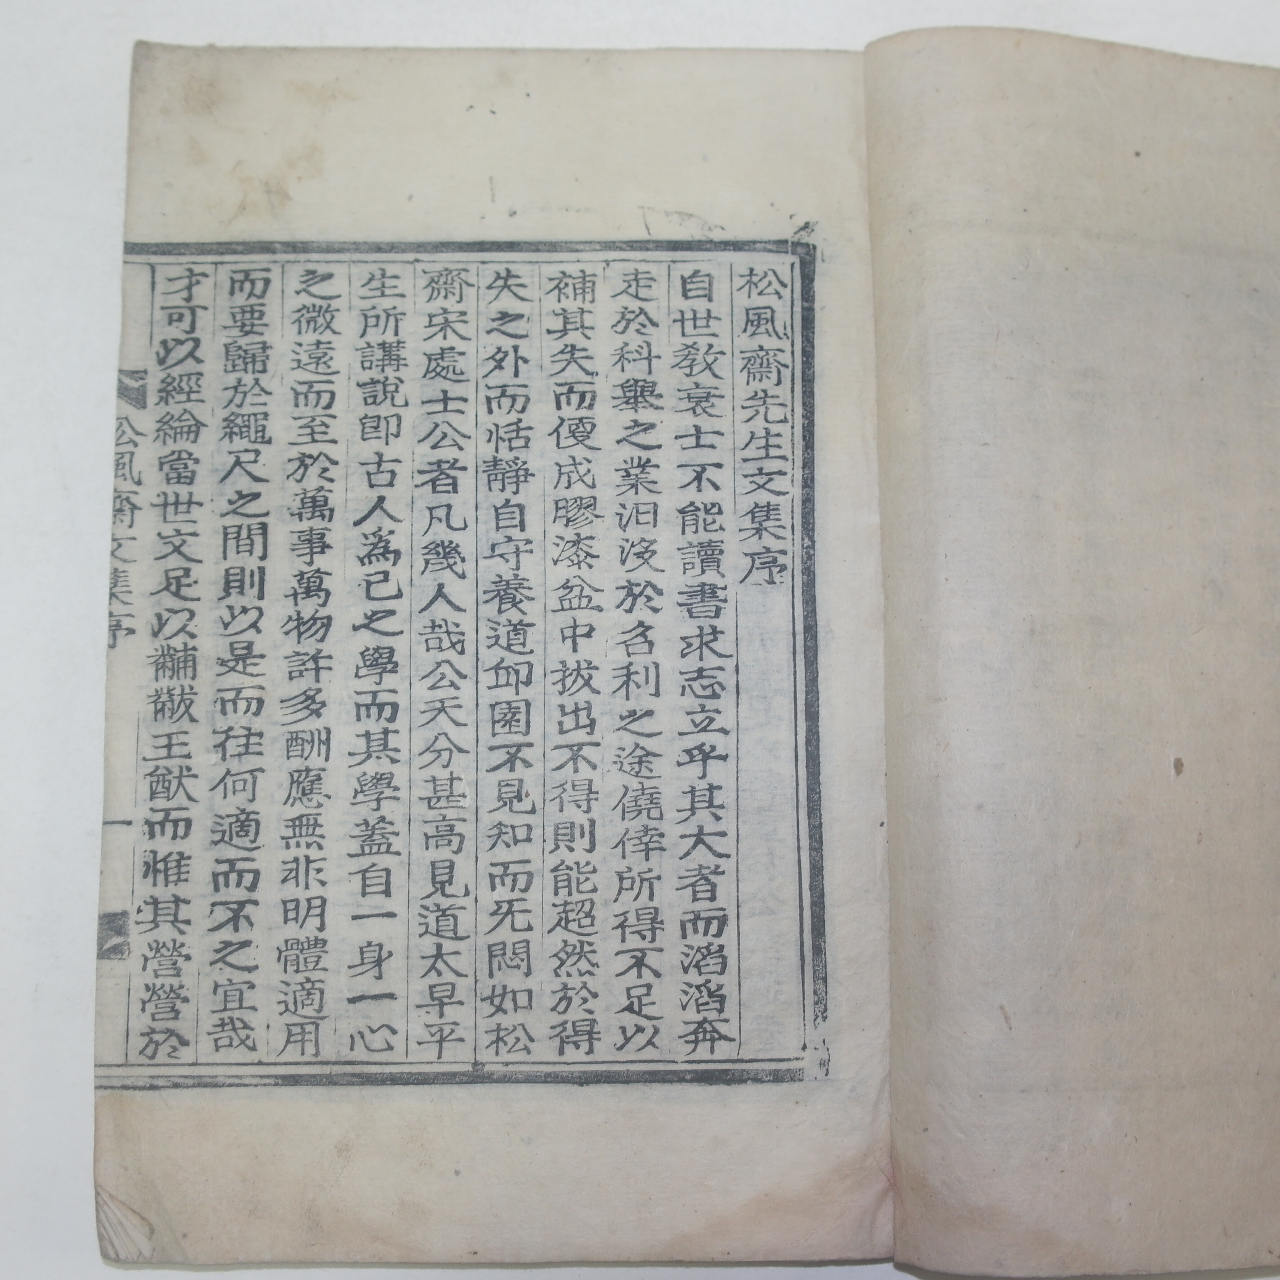 松風齋先生文集序
自世敎衰士不能讀書求志立乎其大者而滔滔奔
走於科擧之業汩沒於名利之途僥倖所得不足以
補其失而優成膠漆盆中拔出不得則能超然於得
失之外而恬靜自守養道邱園不見知而旡悶如松
齋宋處士公者凡幾人哉公天分甚高見道太早平
生所講說卽古人爲已之學而其學蓋自一身一心
之微遠而至於萬事萬物許多酬應無非明體適用
而要歸於繩尺之間則以是而往何適而不之宜哉
才可以經綸當世文足以黼黻王猷而惟其營營於
松風齋文集序
一